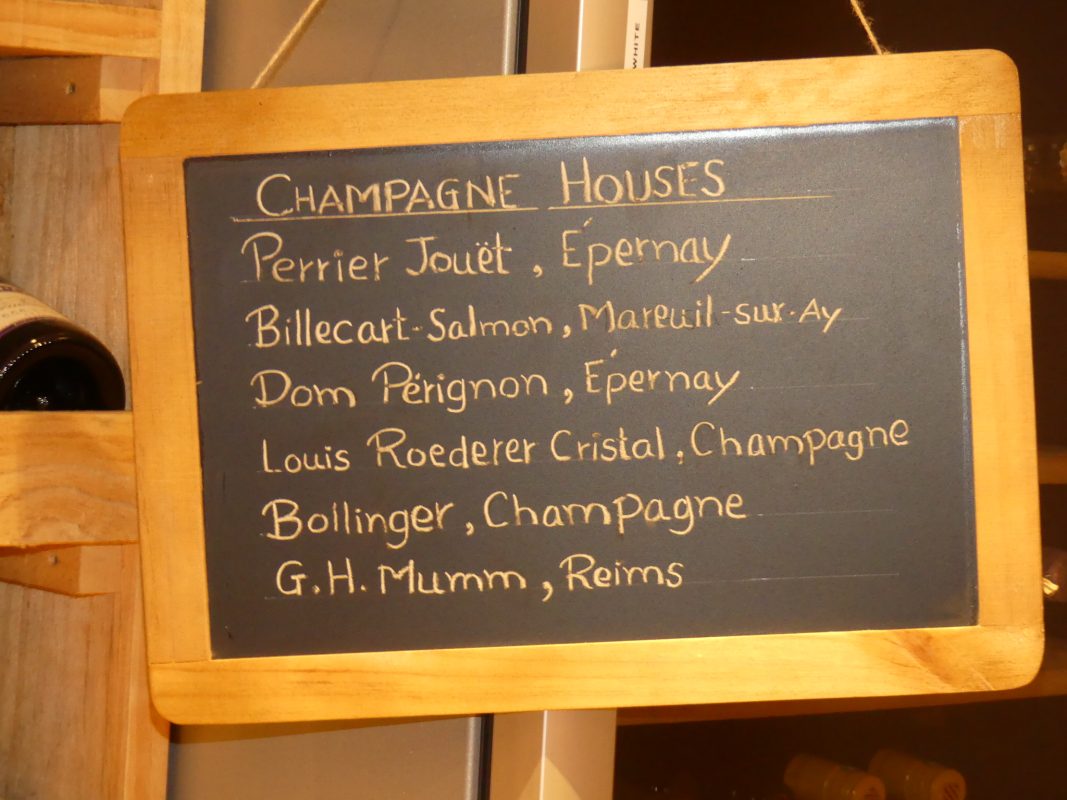 WHITE
CHAMPAGNE HOUSES
Perrier Jouët, Épernay
Billecart-Salmon, Mareuil-sur-Ay
Dom Pérignon, Épernay
Louis Roederer Cristal, Champagne
Bollinger, Champagne
G.H. Mumm, Reims